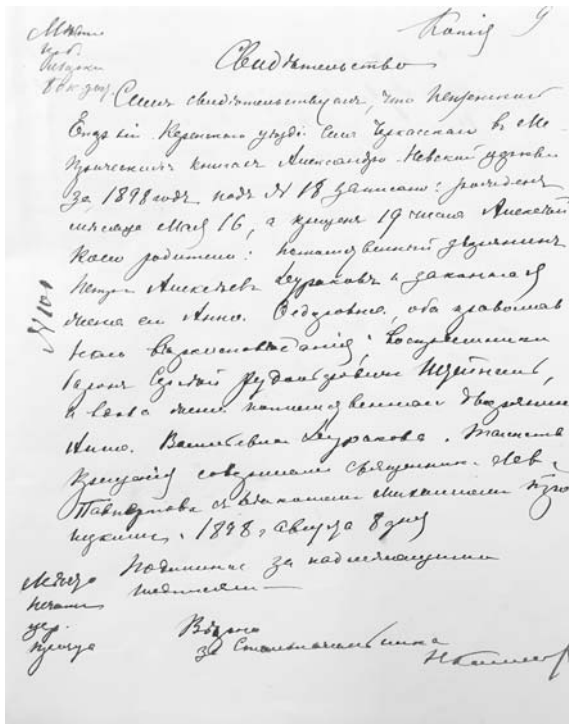 Копія 9
Место
герб.
марки
80 к. дост.
Свидѣтельство
Симъ свидѣтельствуемъ, что Пензенской
Епархіи Керенскаго уѣзда села Черкасскаго въ Ме-
трическихъ книгахъ Александро-Невской церкви
за 1898 годъ подъ № 18 записано: рожденъ
месяца Мая 16, а крещенъ 19 числа Алексѣй
Коего родители: потомственный дворянинъ
Петръ Алексѣевъ и законная
жена его Анна Федоровна, оба православ
наго вѣроисповѣданія; воспріемники
Баронъ Сергѣй Рудольфовичъ
и жена потомственная дворянин
Анна Васильевна. Таинство
крещенія совершали священникъ Лев
съ діакономъ Михаиломъ
1898 г. Августа 8 дня
Подлинные за надлежащими
подписями
№ 100
Место
печати
цер.
причта
Вѣрно
За Столоначальника